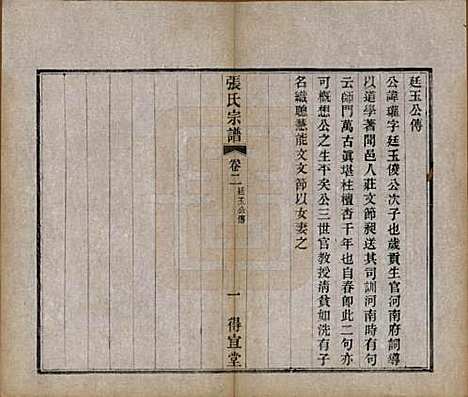 廷玉公傳
公諱瓘字廷玉夌公次子也歲貢生官河南府訓導
以道學著聞邑人莊文節昶送其司訓河南時有句
云師門萬古眞堪柱檀杏千年也自春卽此二句亦
可槪想公之生平矣公三世官敎授淸貧如洗有子
名織聰慧能文文節以女妻之
張氏宗譜
卷二
廷玉公傳
一
得宜堂